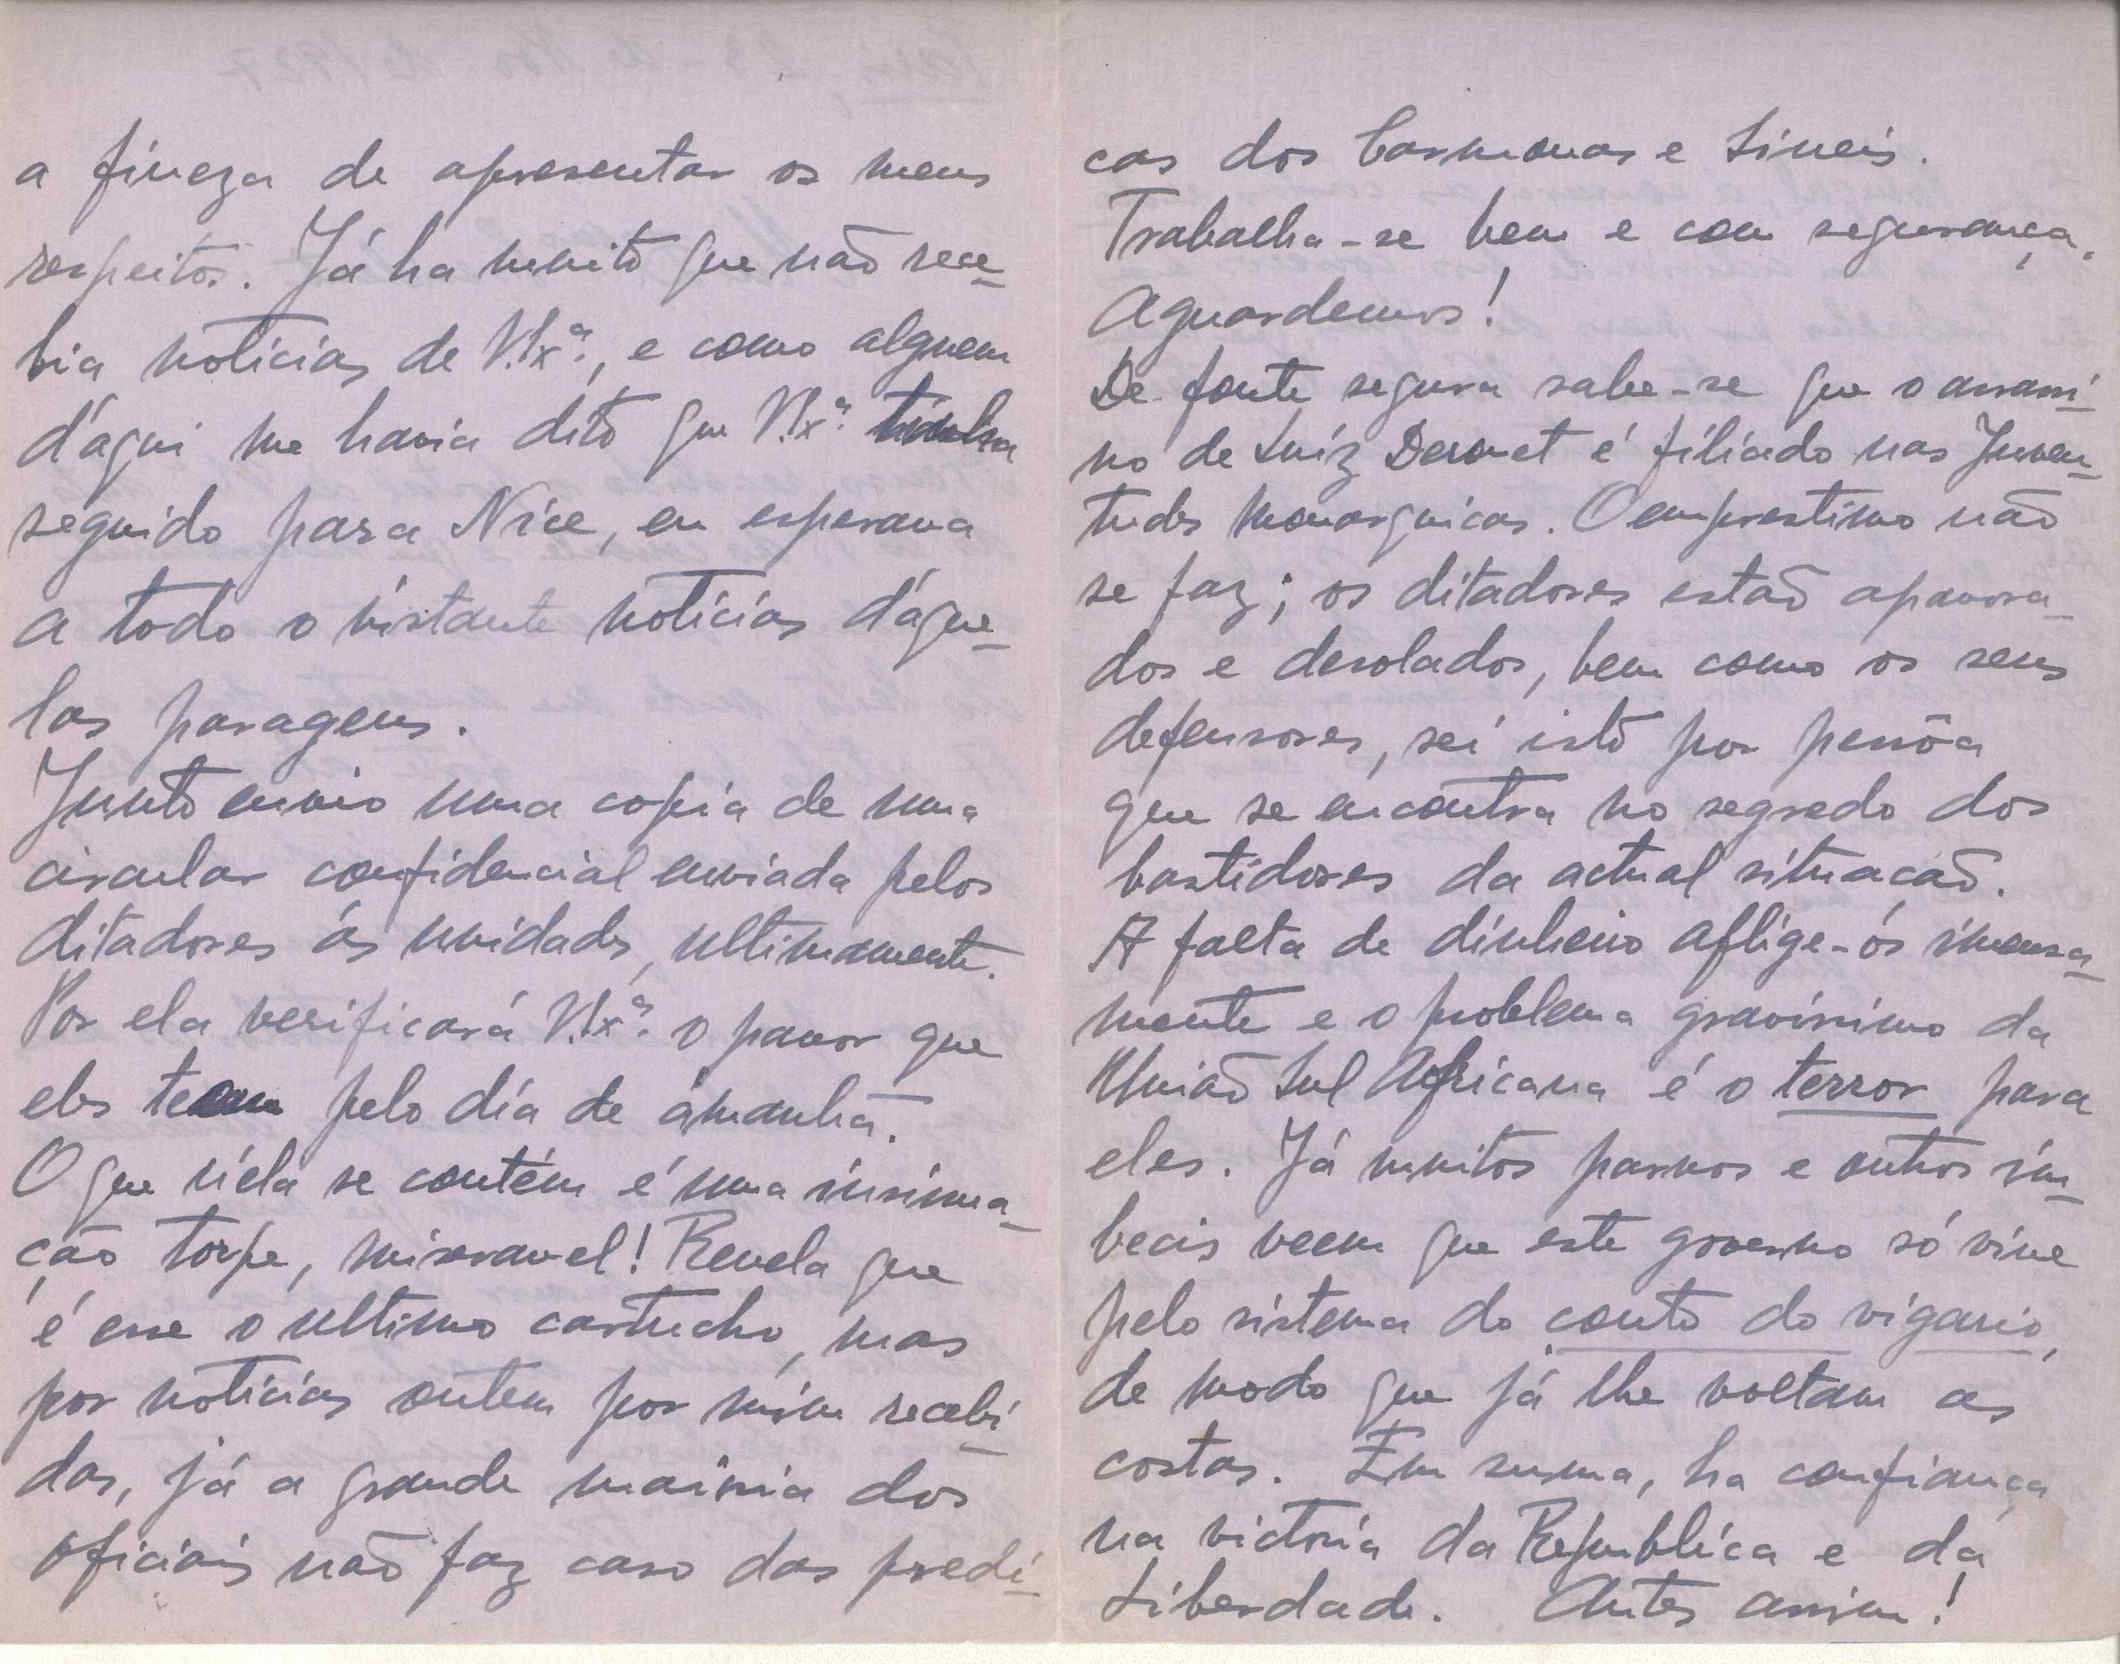 a fineza de apresentar os meus
respeitos. Já ha muito que não rece-
bia noticias de V. Ex.ª, e como alguem
d'aqui me havia dito que V. Ex.ª tinha
seguido para Nice, eu esperava
a todo o instante noticias d'aque-
las paragens.
Junto envio uma copia de uma
circular confidencial enviada pelos
ditadores ás unidades, ultimamente.
Por ela verificará V. Ex.ª o pavor que
eles teem pelo dia de ámanhã.
O que n'ela se contém é uma insinua-
ção torpe, miseravel! Revela que
é esse o ultimo cartucho, mas
por noticias ontem por mim recebi-
das, já a grande maioria dos
oficiais não faz caso das predi-
cas dos Carmonas e Sineis.
Trabalha-se bem e com segurança.
Aguardemos!
De fonte segura sabe-se que o assassi-
no de Luiz Derouet é filiado nas Juven-
tudes monarquicas. O emprestimo não
se faz; os ditadores estão apavora-
dos e desolados, bem como os seus
defensores, sei isto por pessôa
que se encontra no segredo dos
bastidores da actual situação.
A falta de dinheiro aflige-ós imensa-
mente e o problema gravissimo da
União Sul Africana é o terror para
eles. Já muitos parvos e outros im-
becis veem que este governo só vive
pelo sistema do conto do vigario,
de modo que já lhe voltam as
costas. Em suma, ha confiança
na victoria da Republica e da
Liberdade. Antes assim!